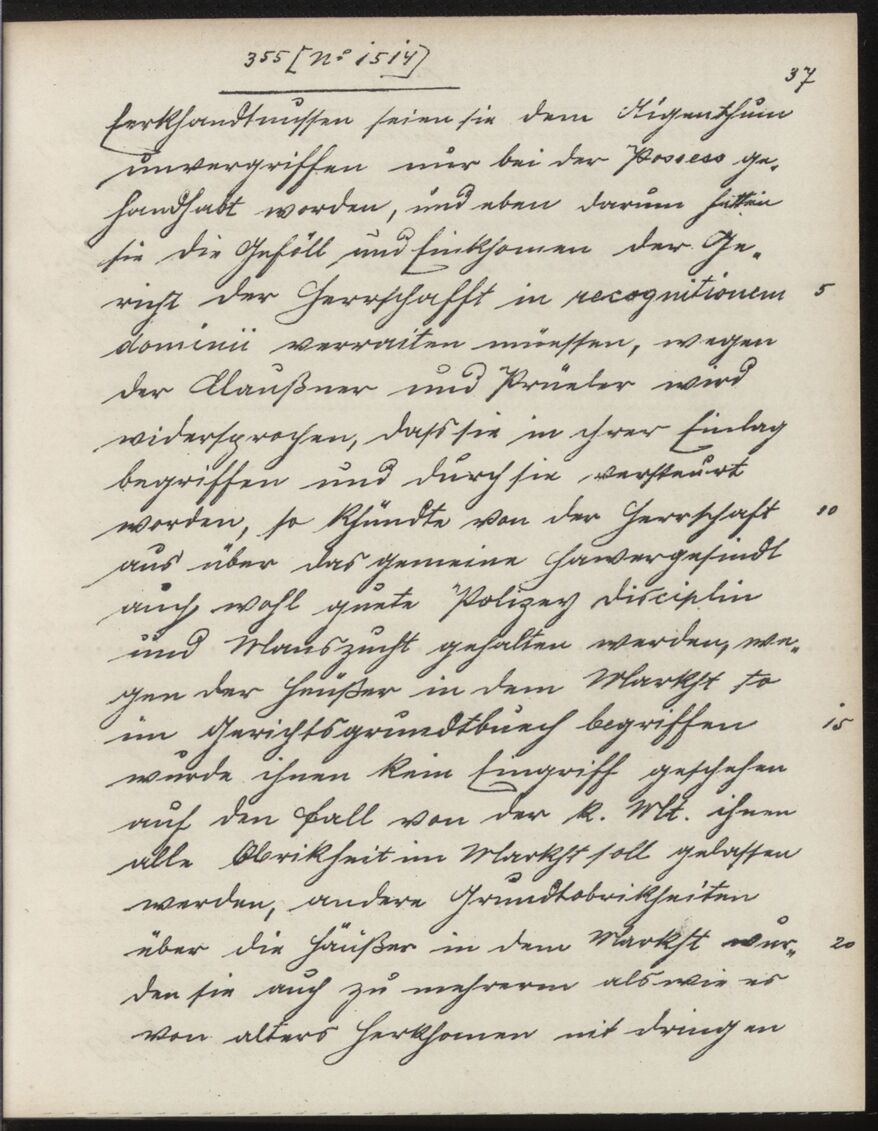 355 [No 1514]
37
Eerkhandtnussen seien sie dem Aigenthum
unvergriffen nur bei der Possess ge-
handhabt worden, und eben darum hetten
sie die Gefäll und Einkhomen der Ge-
richt der Herrschafft in recognitionem 5
dominii verraiten müessen, wegen
der Claußner und Prüeler wird
widersprochen, dass sie in ihrer Einlag
begriffen und durch sie versteurt
worden, so khündte von der Herrschaft 10
aus über das gemeine Hawergesindl
auch wohl guete Polizey Disciplin
und Manszucht gehalten werden, we-
gen der Heüßer in dem Markht so
im Gerichtsgrundtbuech begriffen 15
wurde ihnen kein Eingriff geschehen
auf den Fall von der K. Mt. ihnen
alle Obrikheit im Markht soll gelassen
werden, andere Grundtobrikheiten
über die Häüßer in dem Markht wur- 20
den sie auch zu mehrerm als wie es
von alters Herkhomen nit dringen